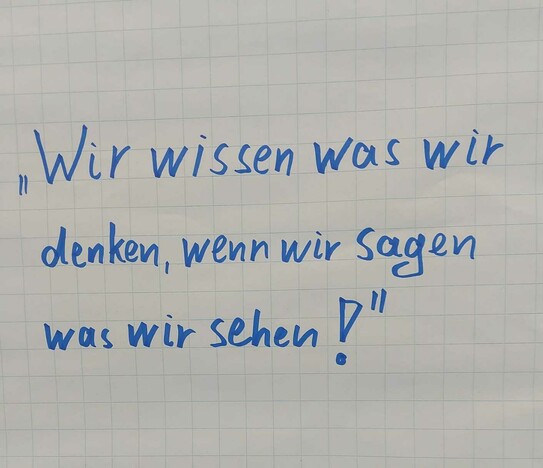 „Wir wissen was wir
denken, wenn wir sagen
was wir sehen!"